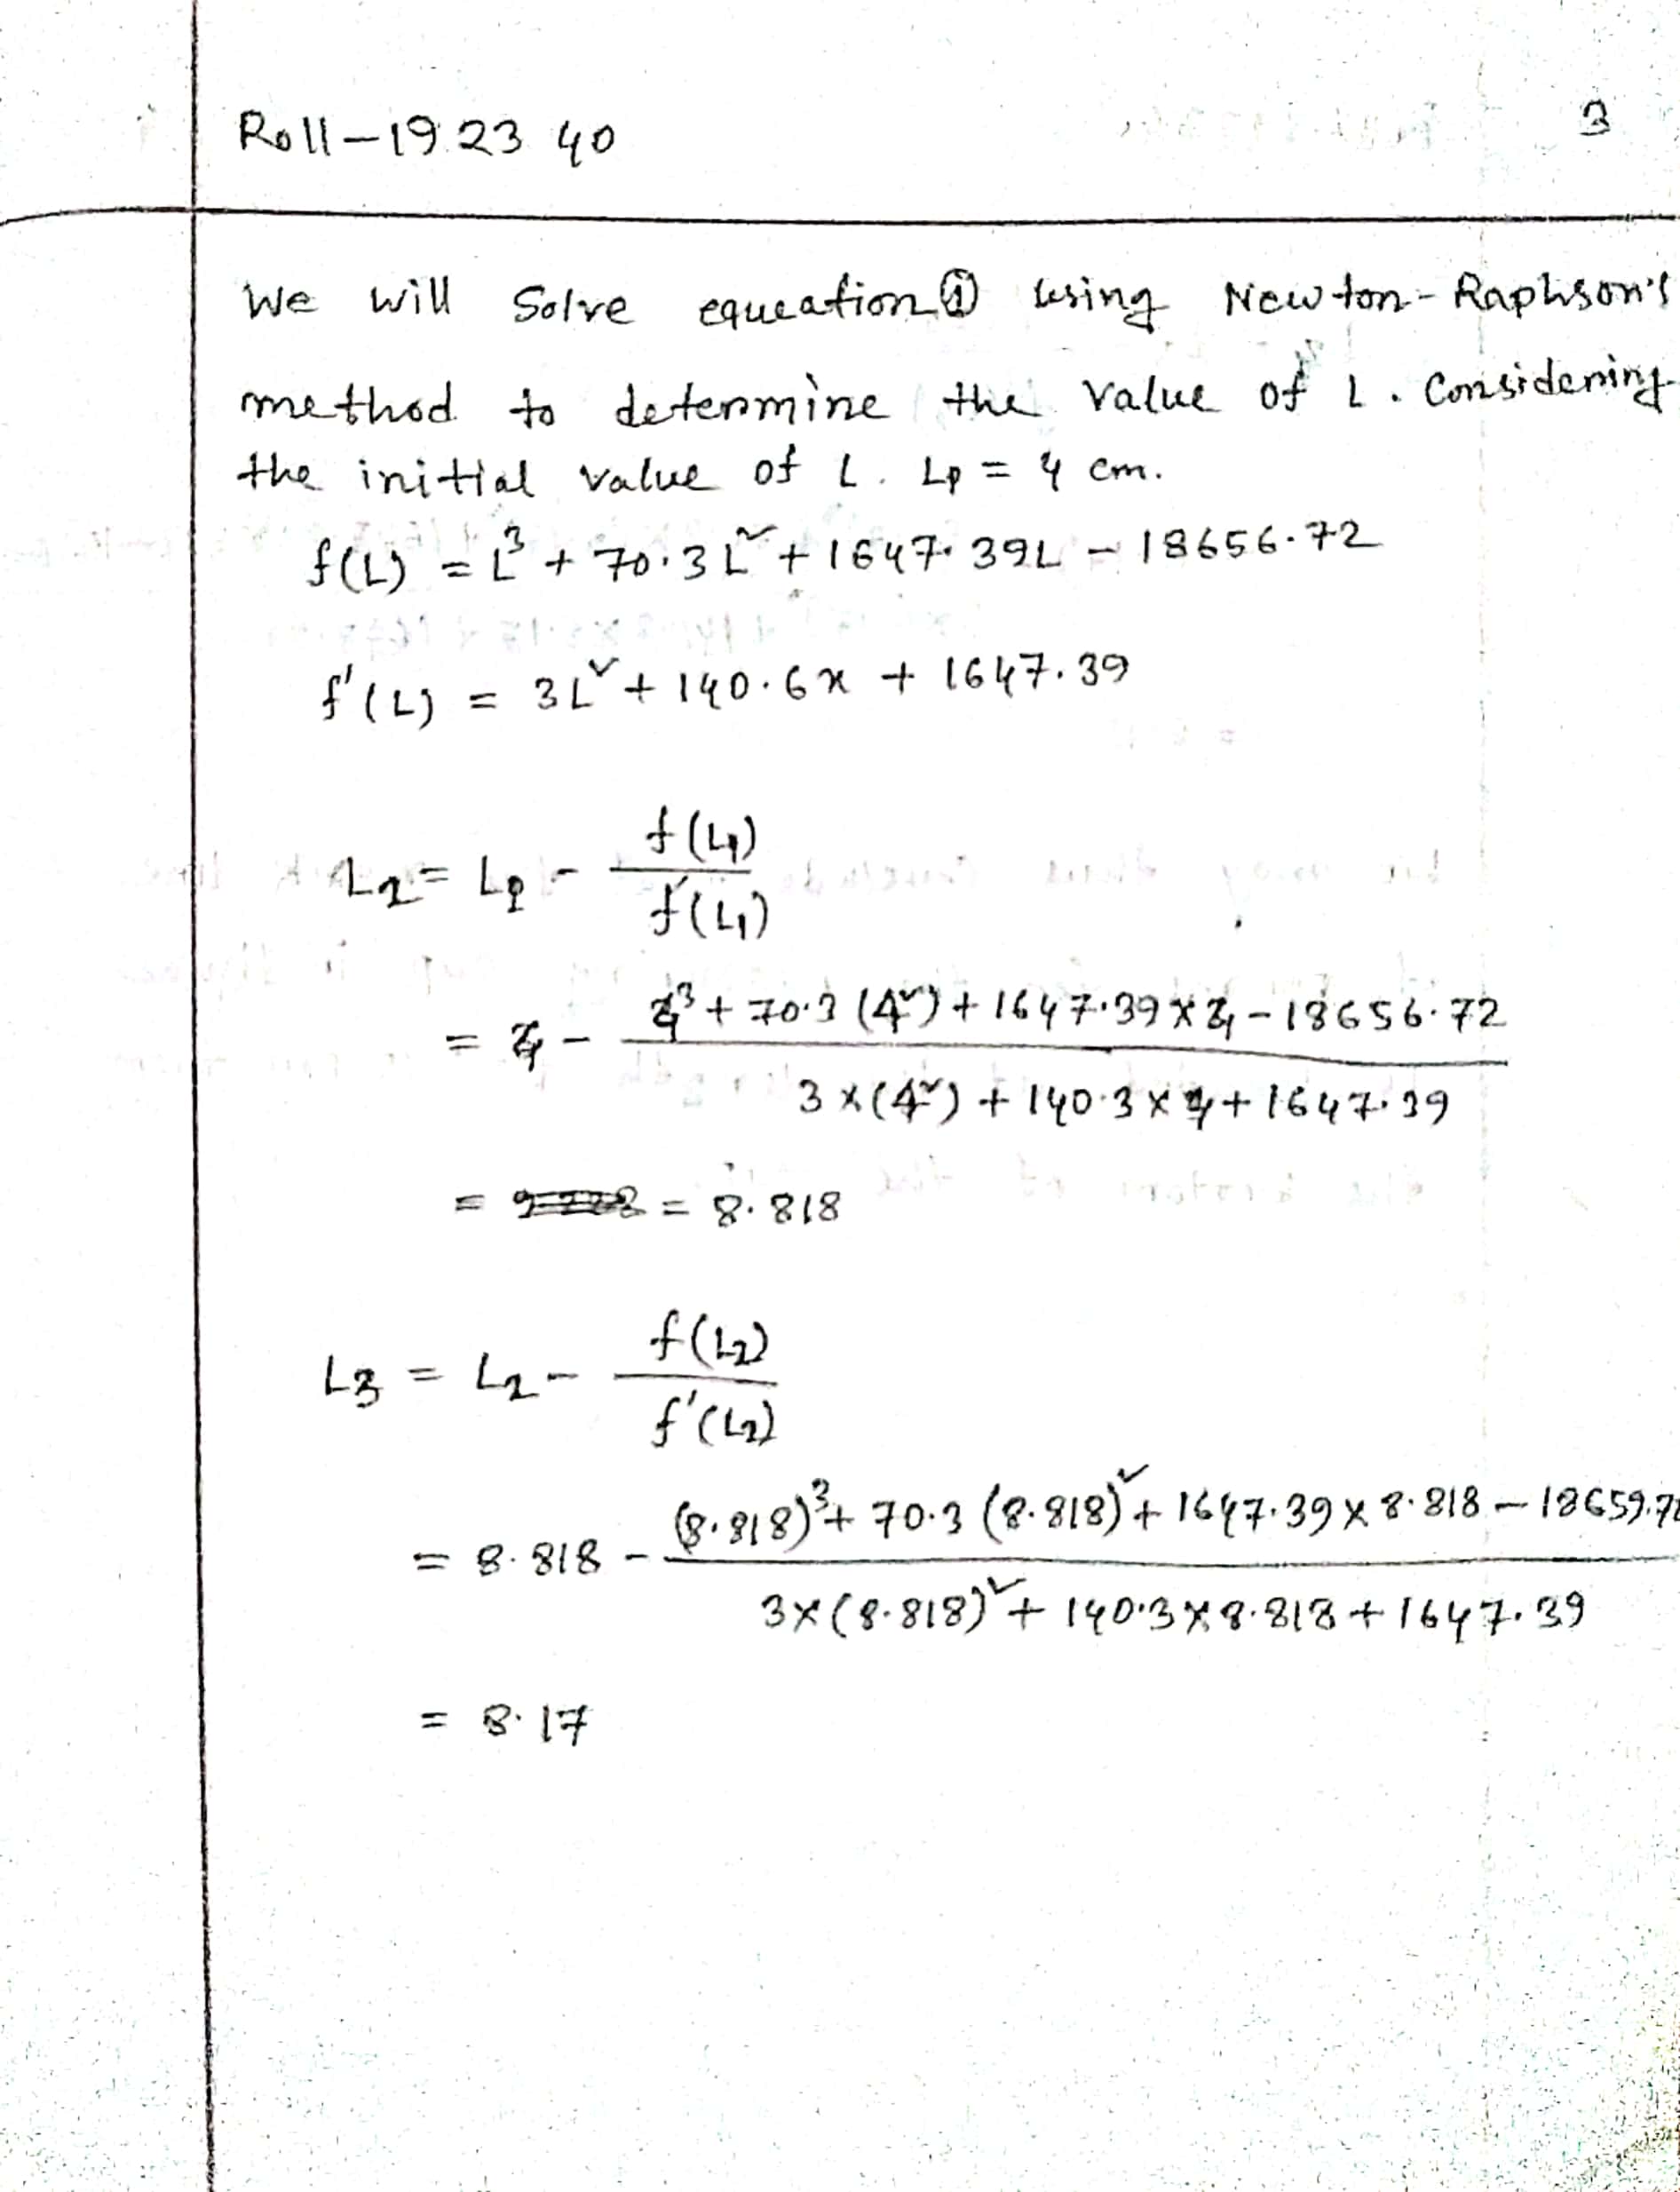 Roll-19 23 40
3
We will Solve equeation ① using Newton-Raphson's
method to determine the value of L. Considering
the initial value of L. L₁ = 4 cm.
f(L) = L³ + 70.3 L² + 1647.39L - 18656.72
f'(L) = 3L² + 140.6x + 1647.39
L₂ = L₁ - f(L₁) / f'(L₁)
= 4 - (4³ + 70.3 (4²) + 1647.39 × 4 - 18656.72) / (3 × (4²) + 140.3 × 4 + 1647.39)
= = 8.818
L₃ = L₂ - f(L₂) / f'(L₂)
= 8.818 - ((8.818)³ + 70.3 (8.818)² + 1647.39 × 8.818 - 18659.7) / (3 × (8.818)² + 140.3 × 8.818 + 1647.39)
= 8.17